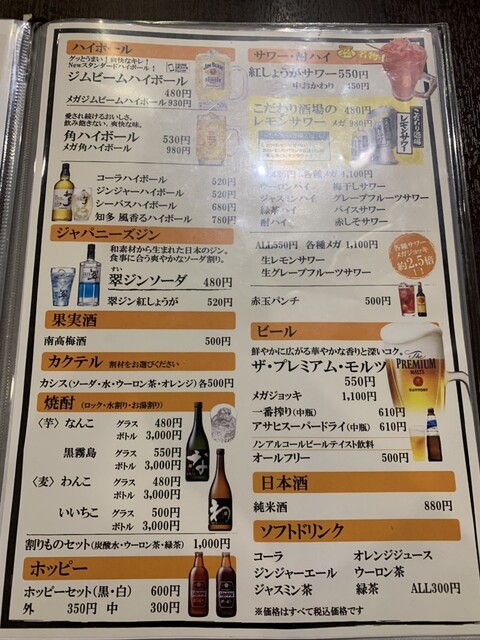 ハイボール
グッとうまい！爽快なキレ！
Newスタンダードハイボール！
ジムビームハイボール
480円
メガジムビームハイボール 930円
愛され続けるおいしさ。
飲み飽きない、爽快な味。
角ハイボール 530円
メガ角ハイボール 980円
コーラハイボール 520円
ジンジャーハイボール 520円
シーバスハイボール 680円
知多 風香るハイボール 780円
ジャパニーズジン
和素材から生まれた日本のジン。
食事に合う爽やかなソーダ割り。
すい
翠ジンソーダ 480円
翠ジン紅しょうが 520円
果実酒
南高梅酒 500円
カクテル 割材をお選びください
カシス(ソーダ・水・ウーロン茶・オレンジ) 各500円
焼酎 (ロック・水割り・お湯割り)
〈芋〉なんこ グラス 480円
ボトル 3,000円
黒霧島 グラス 550円
ボトル 3,000円
〈麦〉わんこ グラス 480円
ボトル 3,000円
いいちこ グラス 500円
ボトル 3,000円
割りものセット(炭酸水・ウーロン茶・緑茶) 1,000円
ホッピー
ホッピーセット(黒・白) 600円
外 350円 中 300円
サワー・酎ハイ
紅しょうがサワー 550円
中おかわり 450円
こだわり酒場の 480円
レモンサワー メガ 980円
こだわり酒場
レモンサワー
各種メガ 1,100円
ウーロンハイ 梅干しサワー
ジャスミンハイ グレープフルーツサワー
緑茶ハイ バイスサワー
酎ハイ 赤しそサワー
ALL550円 各種メガ 1,100円
生レモンサワー
生グレープフルーツサワー
各種サワー
メガジョッキ
約2.5倍
!!
赤玉パンチ 500円
ビール
鮮やかに広がる華やかな香りと深いコク。
ザ・プレミアム・モルツ
550円
メガジョッキ 1,100円
一番搾り(中瓶) 610円
アサヒスーパードライ(中瓶) 610円
ノンアルコールビールテイスト飲料
オールフリー 500円
The
PREMIUM
MALT'S
SUNTORY
日本酒
純米酒 880円
ソフトドリンク
コーラ オレンジジュース
ジンジャーエール ウーロン茶
ジャスミン茶 緑茶 ALL300円
※価格はすべて税込価格です